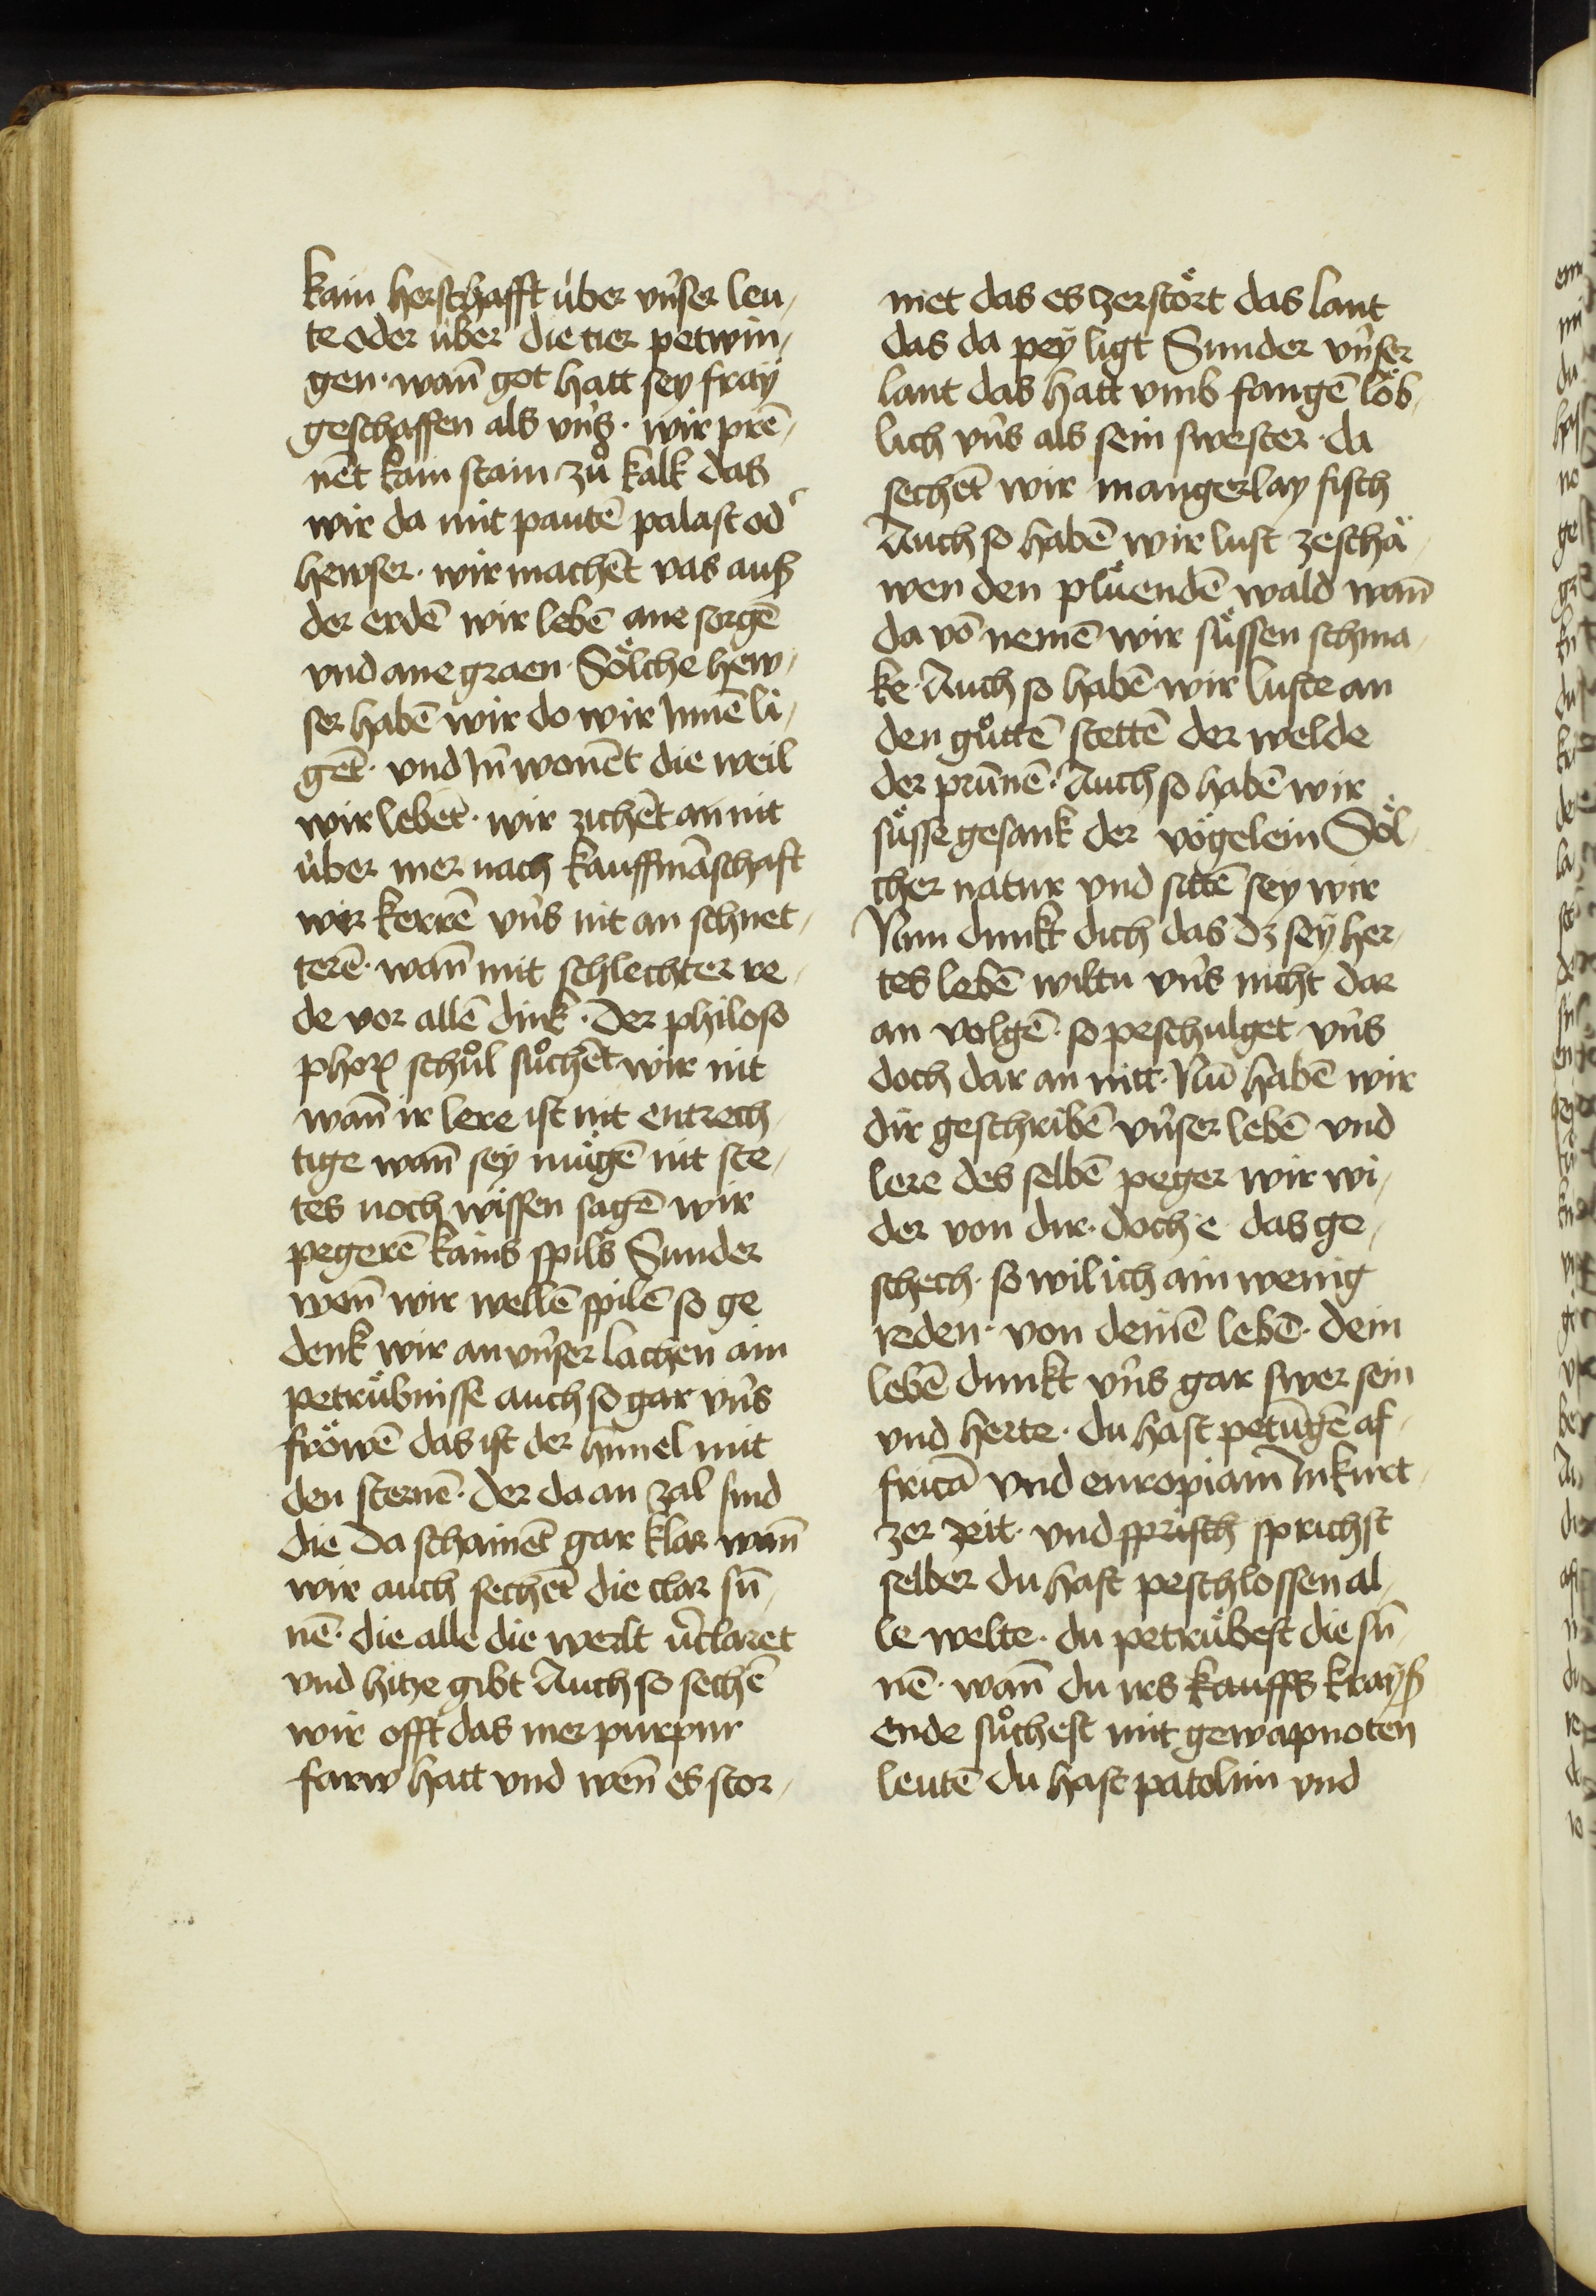 kain herschafft über vnser leu-
te oder über die tier petwin-
gen · wann̄ got hatt sey fray
geschaffen als vns · wir prē-
nēt kain stain zů kalk das
wir da mit pautē palast od'
hewser · wir machēt vas auß
der erdē wir lebē ane sorgē
vnd ane graen · Sölche hew-
ser habē wir do wir Innē li-
gēt · vnd In̄ wonēt die weil
wir lebēt · wir zichēt an nit
über mer nach kauffmāschaft
wir kerrē vns nit an schnet-
terē · wan̄ mit schlechter re-
de vor allē dink · Der philoso
phorꝝ schůl sůchēt wir nit
wan̄ ir lere ist nit entrech
tige wan̄ sey mügē nit ste-
tes noch wissen sagē wir
pegerē kains spils Sunder
wen̄ wir wellē spilē so ge
denk wir an vnser lachen ain
petrübnisse auch so gar vns
fröwē das ist der himel mit
den sternē · der da an zal sind
die da schainēt gar klar wan̄
wir auch sechēt die clar sū-
nē · die alle die werlt v'claret
vnd hitze gibt Auch so sechē
wir offt das mer purpur
farw hatt vnd wen̄ es stor-
met das es zerstört das lant
das da pey ligt Sunder vnser
lant das hatt vmb fangē löb-
lich vns als sein swester · da
sechēt wir mangerlay fisch
Auch so habē wir lust zeschä-
wen den plüendē wald wan̄
da vō nemē wir süssen schma-
ke · Auch so habē wir luste an
den gůttē stettē der welde
der prūnē · Auch so habē wir
süsse gesank der vögelein Söl-
cher natur vnd sittē sey wir
Nun dunkt dich das dz sey her-
tes lebē wiltu vns nicht dar
an volgē · so peschulget vns
doch dar an nitt · Nū habē wir
dir geschribē vnser lebē vnd
lere des selbē peger wir wi-
der von dir · doch e das ge-
schech · so wil ich ain wenig
reden · von deinē lebē · dein
lebē dunkt vns gar swer sein
vnd herte · du hast petūgē af-
fricā vnd europiam In kurt-
zer zeit · vnd sprisch sprichst
selber du hast peschlossen al-
le welte · du petrübest die sū-
nē · wan̄ du irs kauffs krayß
ende sůchest mit gewapnoten
leutē du hast patolim vnd